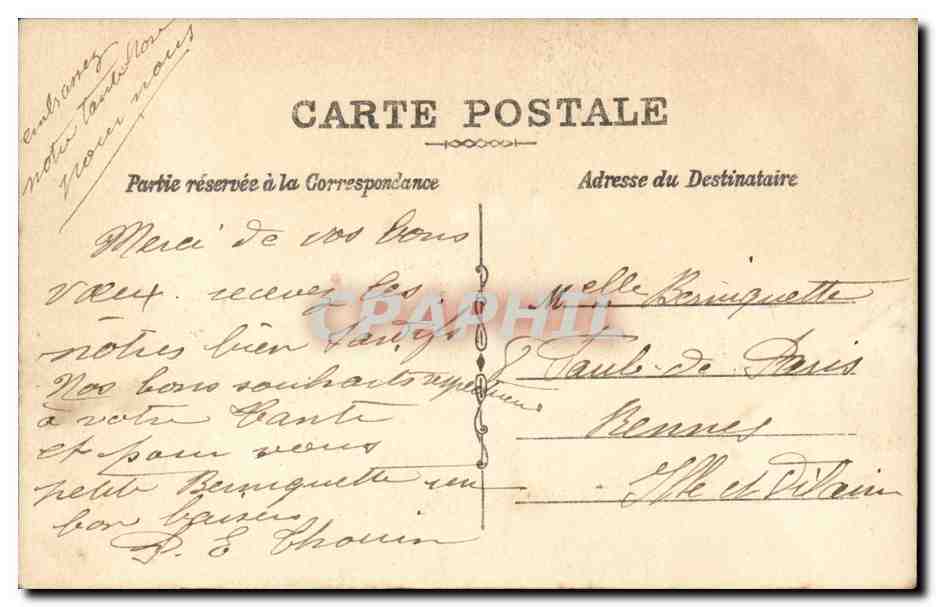 embrassez
notre tante pour
nous
CARTE POSTALE
Partie réservée à la Correspondance
Adresse du Destinataire
Merci de vos bons
vœux. recevez les
nôtres bien
Nos bons souhaits respectueux
à votre tante
et pour vous
petite Berniquette un
bon baisers
P. E Thouin
CPAPHIL
Melle Berniquette
Faub. de Paris
Rennes
Ille et Vilaine